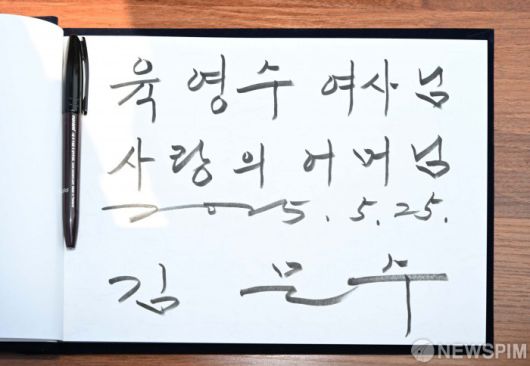 육영수 여사님
사랑의 어머님
2025. 5. 25.
김 문 수
NEWSPIM